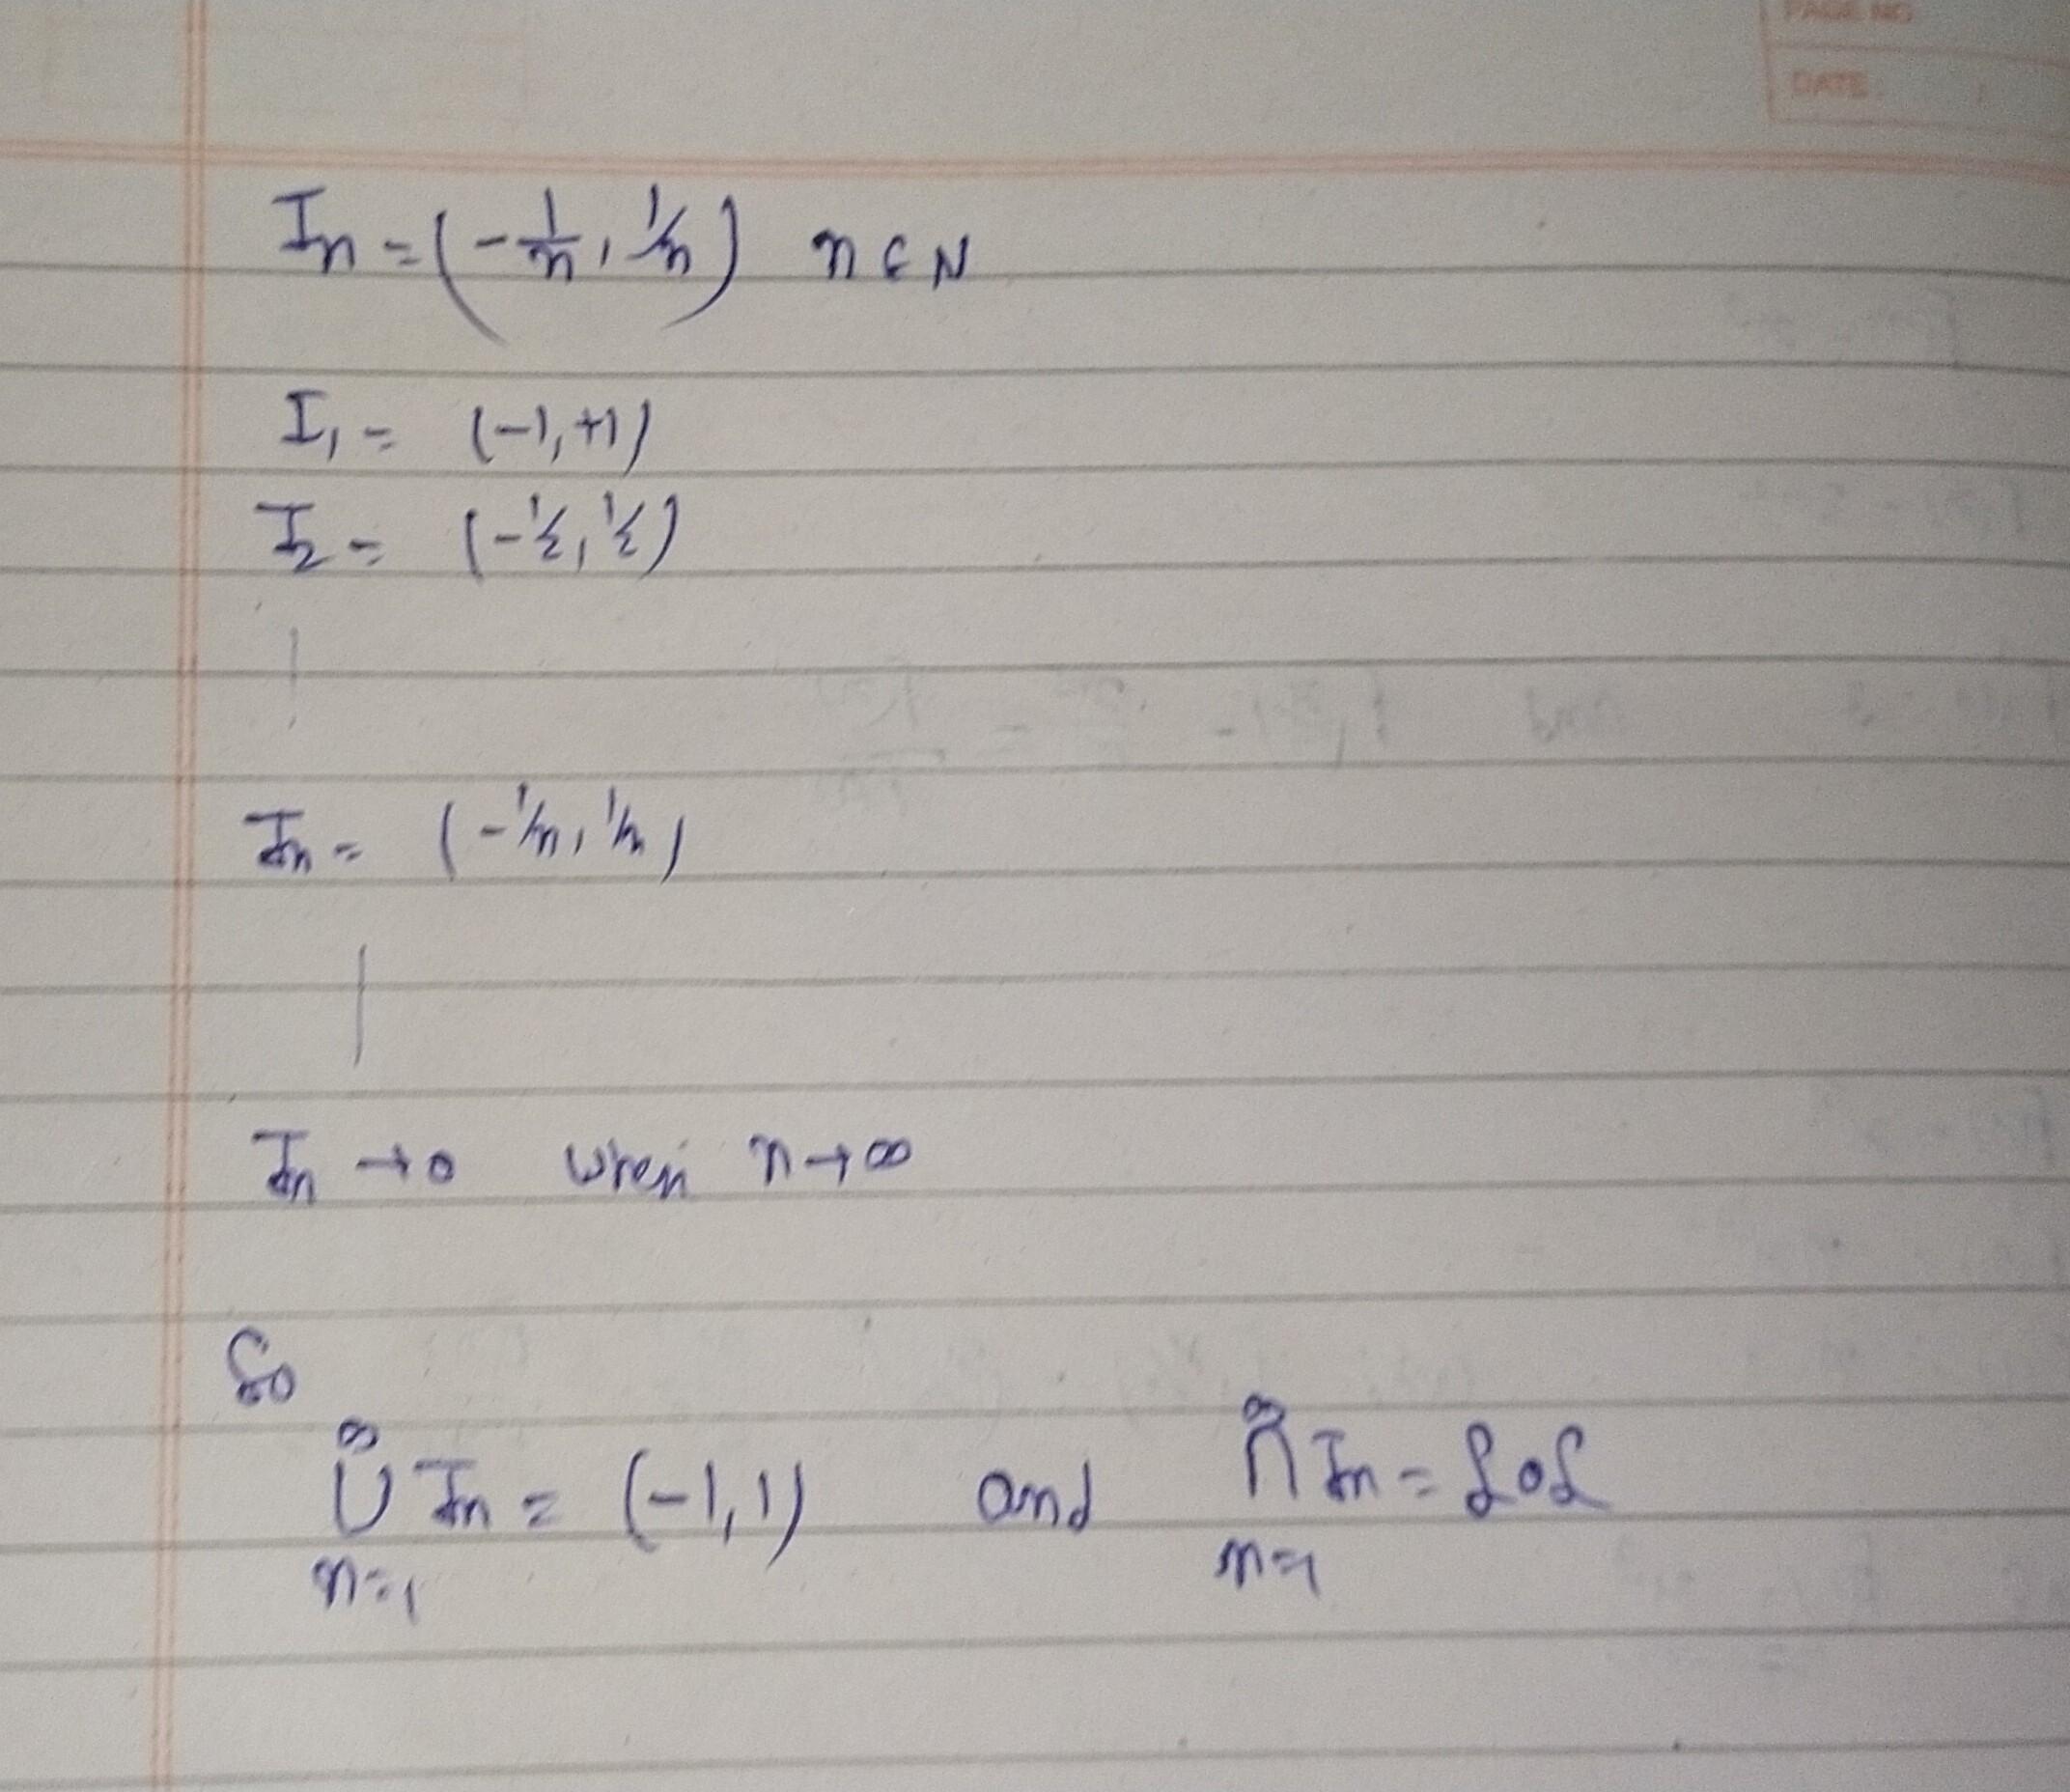 PAGE NO
DATE:
Iₙ = (-1/n, 1/n) n ∈ N
I₁ = (-1, +1)
I₂ = (-1/2, 1/2)
|
Iₙ = (-1/n, 1/n)
|
Iₙ → 0 when n → ∞
So
∞⋃n=1 Iₙ = (-1, 1) and ∞⋂n=1 Iₙ = {0}